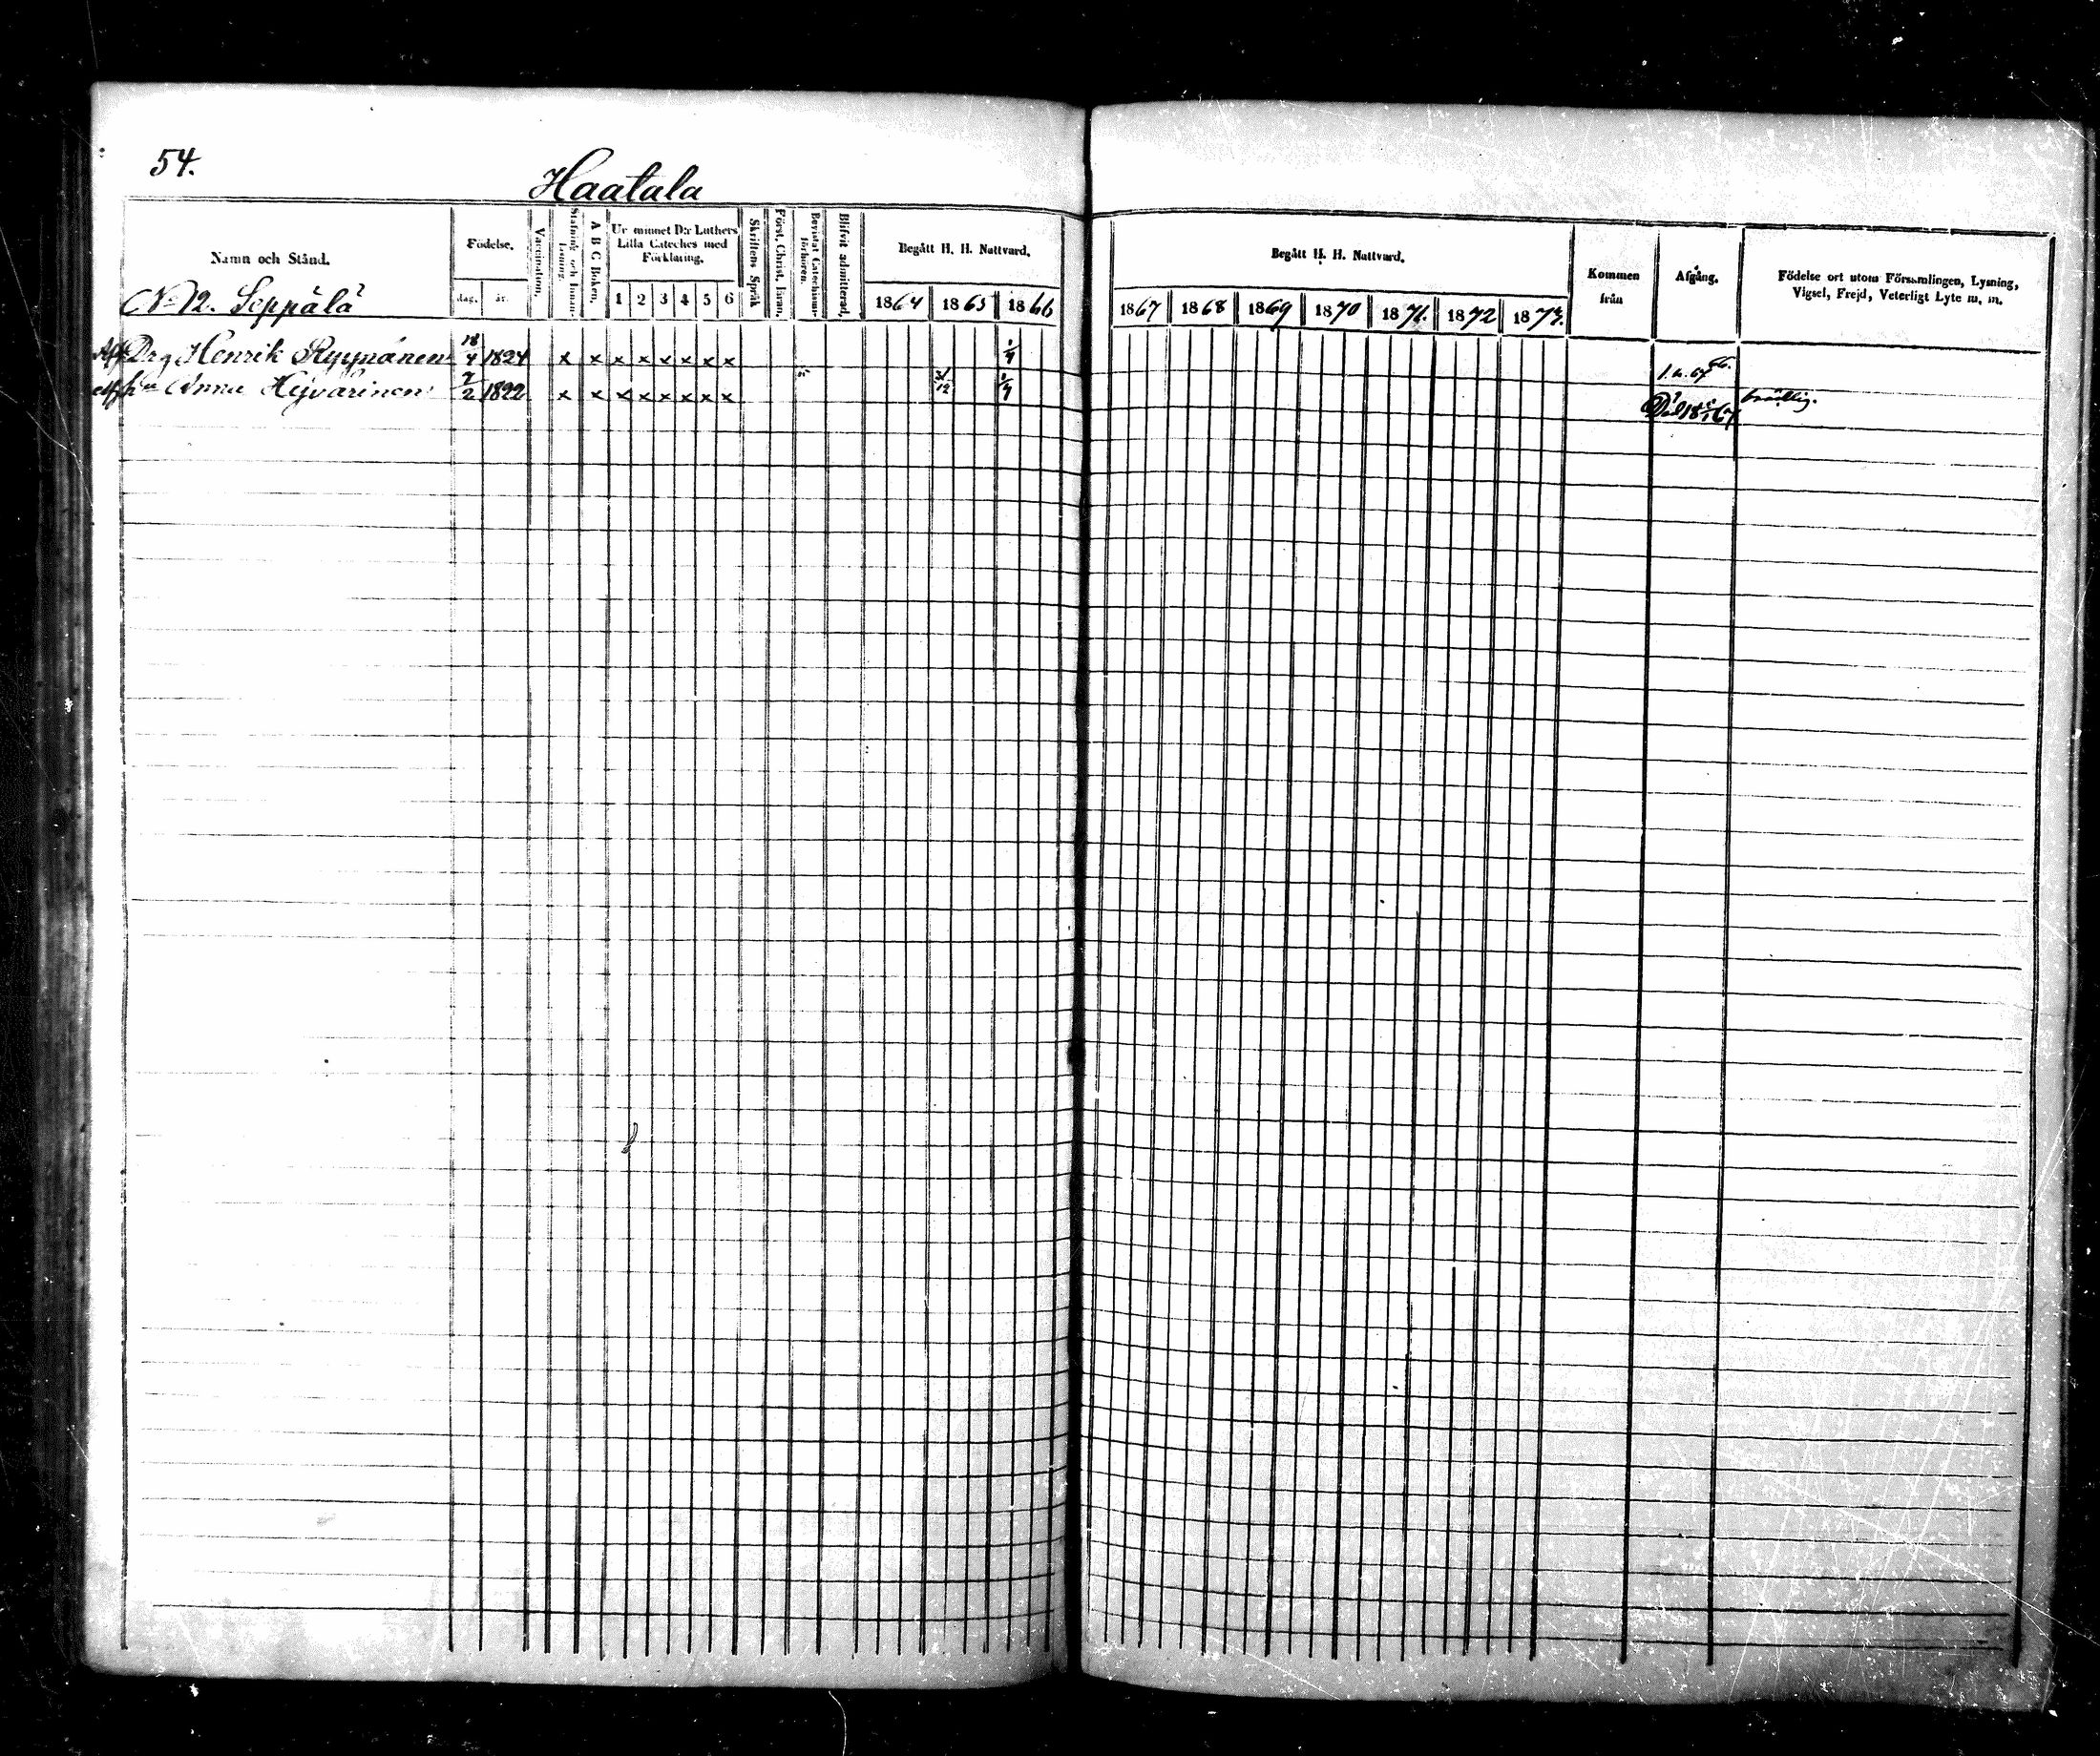 54.
Haatala
Namn och Stånd.
Födelse.
dag.
år.
Vaccination.
Stafning och Innan-läsning.
A B C Boken,
Ur minnet D:r Luthers Lilla Cateches med Förklaring.
1 2 3 4 5 6
Skriftens Språk
Först, Christ. läran,
Bevistat Catechismi-förhören.
Blifvit admitterad,
Begått H. H. Nattvard,
1864 1865 1866
Begått H. H. Nattvard,
1867 1868 1869 1870 1871. 1872 1873.
Kommen från
Afgång.
Födelse ort utom Församlingen, Lysning, Vigsel, Frejd, Veterligt Lyte m. m.
No 2. Seppälä
Drg Henrik Ryynänen 18/4 1824 x x x x x x x x
Anna Hyvärinen 7/2 1822 x x x x x x x x 31/12
Död 67